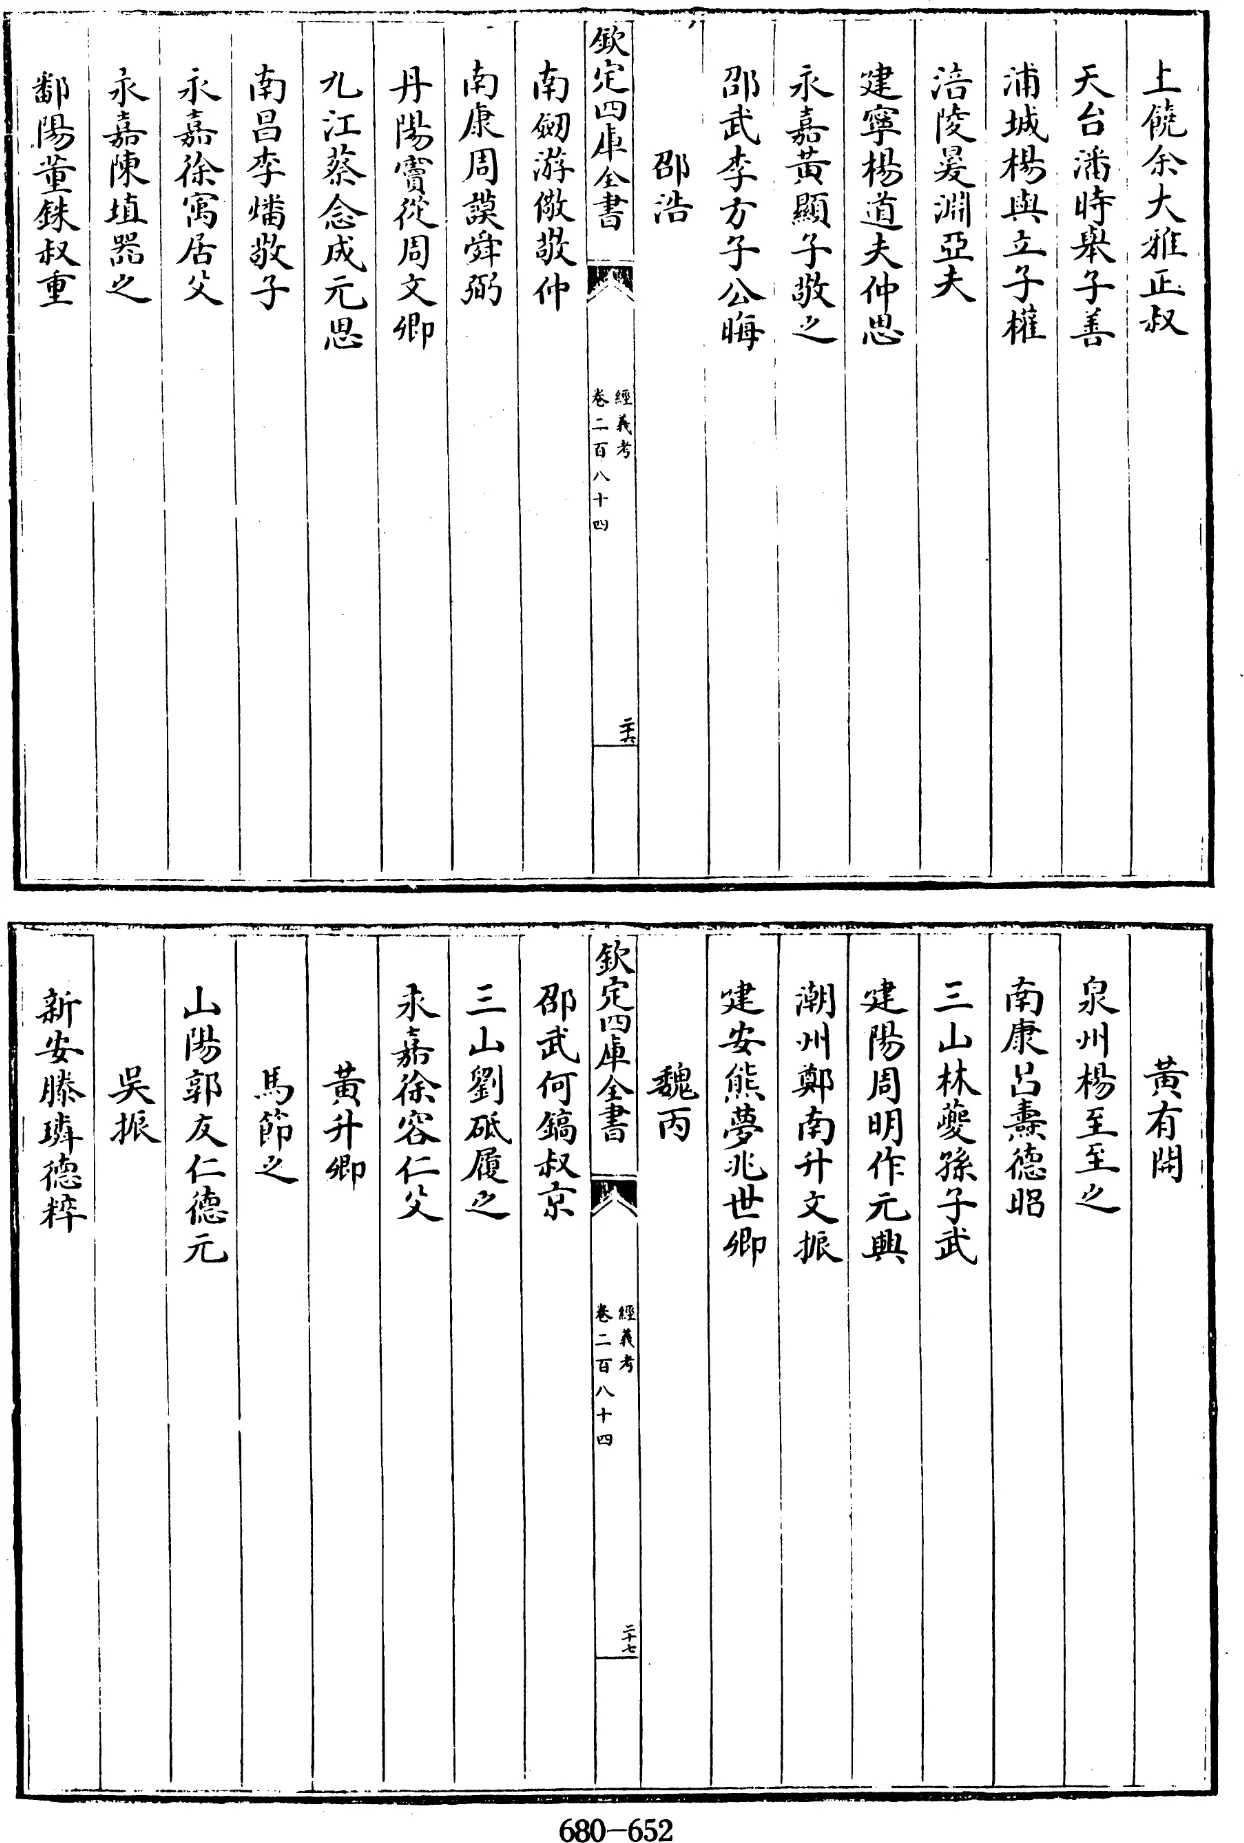 上饒余大雅正叔
天台潘時舉子善
浦城楊與立子權
涪陵㬊淵亞夫
建寧楊道夫仲思
永嘉黃顯子敬之
邵武李方子公晦
邵浩
欽定四庫全書
經義考
卷二百八十四
二十六
南劒游儆敬仲
南康周謨舜弼
丹陽竇從周文卿
九江蔡念成元思
南昌李燔敬子
永嘉徐寓居父
永嘉陳埴器之
鄱陽董銖叔重
黃有開
泉州楊至至之
南康呂燾德昭
三山林夔孫子武
建陽周明作元興
潮州鄭南升文振
建安熊夢兆世卿
魏丙
欽定四庫全書
經義考
卷二百八十四
二十七
邵武何鎬叔京
三山劉砥履之
永嘉徐容仁父
黃升卿
馬節之
山陽郭友仁德元
吳振
新安滕璘德粹
680-652